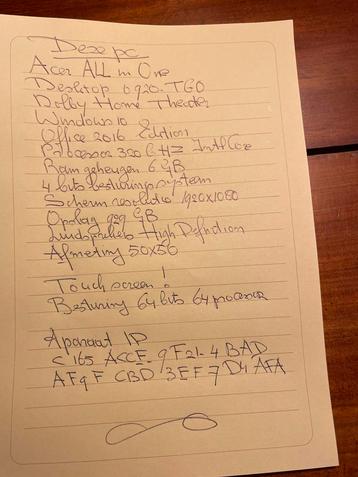 Deze pc
Acer ALL in One
Desktop 6920-TGO
Dolby Home Theater
Windows 10
Office 2016 Edition
Processor 320 GHz Intl Core
Ram geheugen 6 GB
4 bits besturingssysteem
Scherm resolutie 1920x1080
Opslag 929 GB
Luidsprekers High Definition
Afmeting 50x50
Touch screen!
Besturing 64 bits 64 processor
Aparaat ID
C165 ACCF-9F21-4BAD
AF9F CBD 3EF7D4AFA